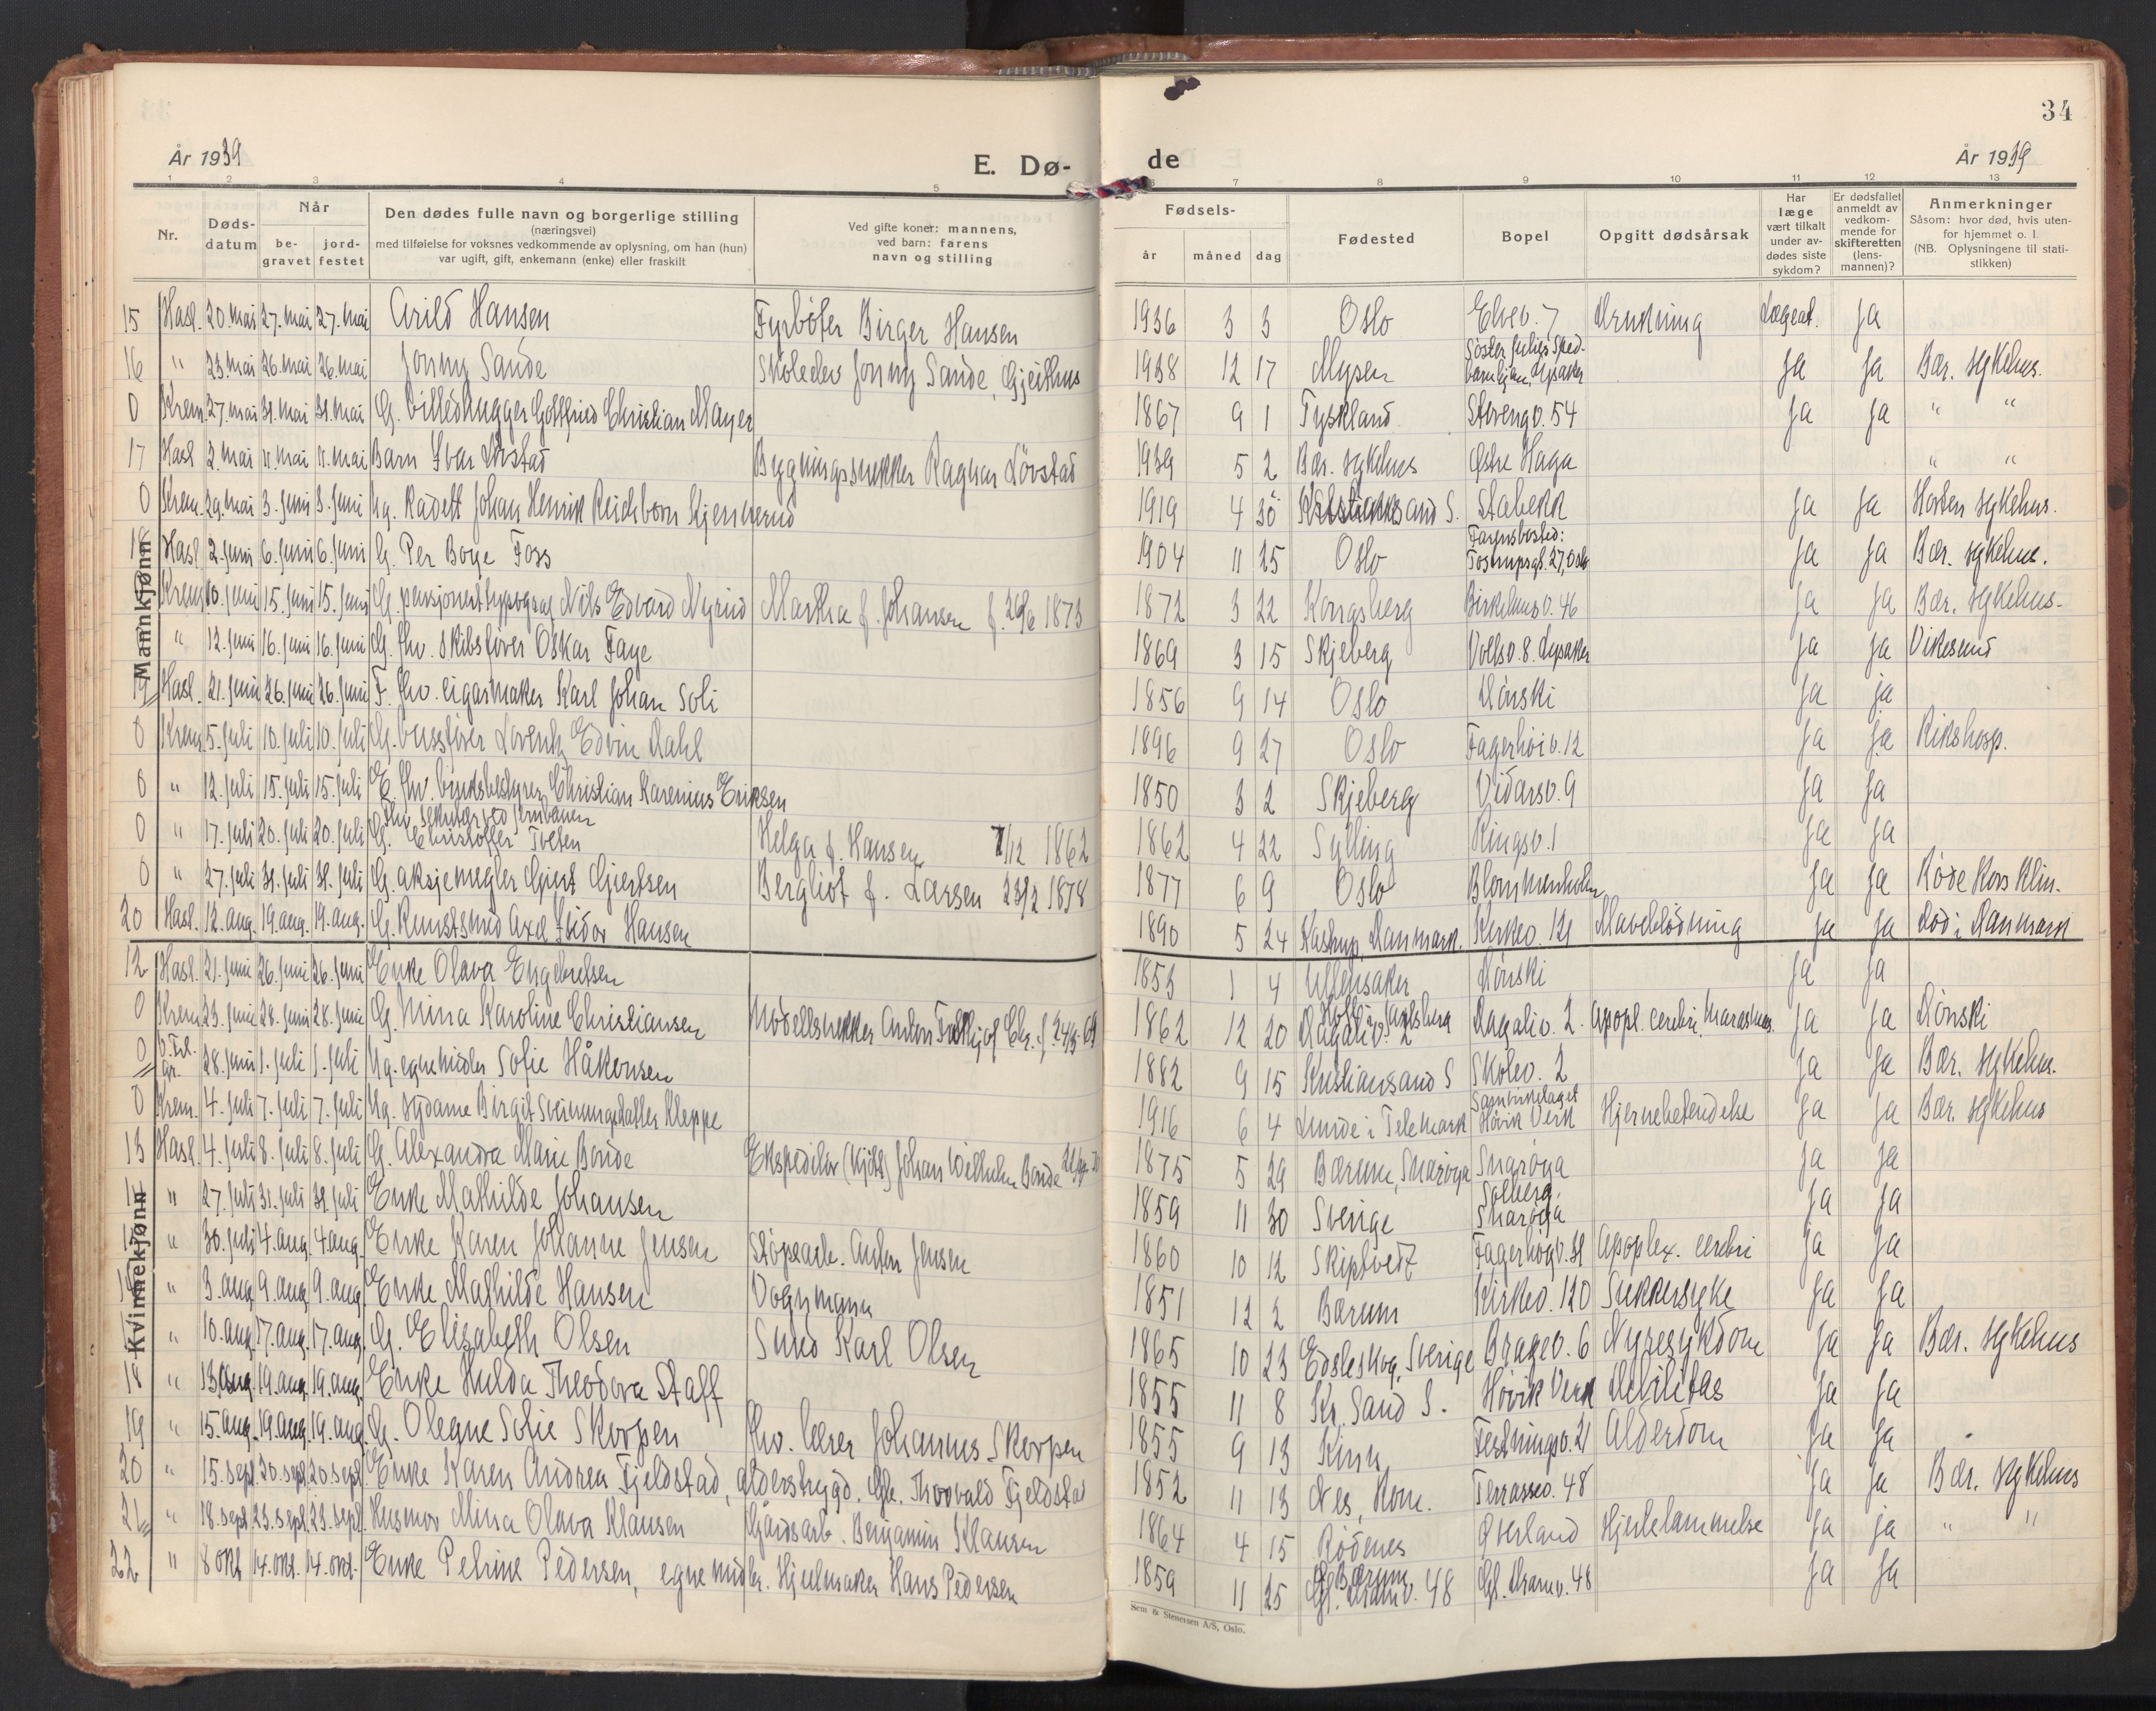 34
År 1939
E. Dø-
de
År 1939
1 2 3 4 5 6 7 8 9 10 11 12 13
Nr.
Døds-
datum
Når
be-
gravet
jord-
festet
Den dødes fulle navn og borgerlige stilling
(næringsvei)
med tilføielse for voksnes vedkommende av oplysning, om han (hun)
var ugift, gift, enkemann (enke) eller fraskilt
Ved gifte koner: mannens,
ved barn: farens
navn og stilling
Fødsels-
år måned dag
Fødested
Bopel
Opgitt dødsårsak
Har
læge
vært tilkalt
under av-
dødes siste
sykdom?
Er dødsfallet
anmeldt av
vedkom-
mende for
skifteretten
(lens-
mannen)?
Anmerkninger
Såsom: hvor død, hvis uten-
for hjemmet o. l.
(NB. Oplysningene til stati-
stikken)
Mannkjønn
15 Hasl. 20. mai 27. mai 27. mai Arild Hansen Fyrbøter Birger Hansen 1936 3 3 Oslo Elvev. 7 Drukning Lægeat. ja
16 " 23. mai 26. mai 26. mai Jonny Sande Skoleelev Jonny Sande, Gjeithus 1938 12 17 Mysen Søster Julies Sped-
barnhjem, Lysaker ja ja Bær. sykehus.
0 Krem. 27. mai 31. mai 31. mai G. billedhugger Gottfried Christian Mayer 1867 9 1 Tyskland Storengv. 54 ja ja " "
17 Hasl. 2. mai 11. mai 11. mai Barn Ivar Løvstad Bygningssnekker Ragnar Løvstad 1939 5 2 Bær. sykehus Østre Haga " "
0 Krem. 29. mai 3. juni 3. juni Ug. Kadett Johan Henrik Reichborn Kjennerud 1919 4 30 Kristiansand S. Stabekk ja ja Horten sykehus.
18 Hasl. 2. juni 6. juni 6. juni G. Per Boye Foss 1904 11 25 Oslo Farens bosted:
27, Oslo ja ja Bær. sykehus.
Krem. 10. juni 15. juni 15. juni G. pensjonert typograf Nils Edvard Nyrud Martha f. Johansen f. 26/6 1873 1872 3 22 Kongsberg Birkelunv. 46 ja ja Bær. sykehus.
" 12. juni 16. juni 16. juni G. fhv. skibsfører Oskar Faye 1869 3 15 Skjeberg Vollsv. 8. Lysaker ja ja Vikesund
19 Hasl. 21. juni 26. juni 26. juni F. fhv. cigarmaker Karl Johan Soli 1856 9 14 Oslo Dønski ja ja
0 Krem. 5. juli 10. juli 10. juli G. bussfører Lorentz Edvin Dahl 1896 9 27 Oslo Fagerhøiv. 12 ja ja Rikshosp.
0 " 12. juli 15. juli 15. juli E. fhv. bruksbestyrer Christian Karenius Eriksen 1850 3 2 Skjeberg Vidarsv. 9 ja ja
fhv. sekretær ved jernbanen
0 " 17. juli 20. juli 20. juli G. Christoffer Tveten Helga f. Hansen 7/12 1862 1862 4 22 Sylling Ringsv. 1 ja ja
0 " 27. juli 31. juli 31. juli G. aksjemegler Gjert Gjertsen Bergliot f. Larsen 23/2 1878 1877 6 9 Oslo Blommenholm ja ja Røde Kors Klin.
20 Hasl. 12. aug. 19. aug. 19. aug. G. Kunstsmed Axel Isidor Hansen 1890 5 24 Kastrup, Danmark. Kirkev. 121 Maveblødning ja ja Død i Danmark
Kvinnekjønn
12 Hasl. 21. juni 26. juni 26. juni Enke Olava Engebretsen 1853 1 4 Ullensaker Dønski ja ja
0 Krem. 23. juni 28. juni 28. juni G. Mina Karoline Christiansen Modellsnekker Anton Fridthjof Chr. f. 24/5 69 1862 12 20 Dagaliv. 2 Dagaliv. 2. Apopl. cerebri, Marasmus ja ja Dønski
0 28. juni 1. juli 1. juli Ug. egne midler Sofie Håkonsen 1882 9 15 Kristiansand S Skolev. 2 ja ja Bær. sykehus.
0 Krem. 4. juli 7. juli 7. juli Ug. sydame Birgit Sveinungsdatter Kleppe 1916 6 4 Lunde i Telemark Samvirkelaget
Høvik Verk Hjernebetendelse ja ja Bær. sykehus
13 Hasl. 4. juli 8. juli 8. juli G. Alexandra Marie Bonde Ekspeditør (kjøtt) Johan Wilhelm Bonde 1875 5 29 Bærum, Snarøya Snarøya ja ja
" 27. juli 31. juli 31. juli Enke Mathilde Johansen 1859 11 30 Sverige Solberg,
Snarøya ja ja
" 30. juli 4. aug. 4. aug. Enke Karen Johanne Jensen Støpearb. Anton Jensen 1860 10 12 Skiptvedt Fagerhøgv. 31 Apoplex. cerebri ja ja
" 3. aug. 9. aug. 9. aug. Enke Mathilde Hansen Vognmann 1851 12 2 Bærum Kirkev. 120 Sukkersyke ja ja
" 10. aug. 17. aug. 17. aug. G. Elisabeth Olsen Smed Karl Olsen 1865 10 23 Edsleskog, Sverige Bragev. 6 Nyresykdom ja ja Bær. sykehus
18 " 13. aug. 19. aug. 19. aug. Enke Hulda Theodora Staff 1855 11 8 Kr. Sand S. Høvik Verk Debilitas ja ja
19 " 15. aug. 19. aug. 19. aug. G. Olegne Sofie Skorpen fhv. lærer Johannes Skorpen 1855 9 13 Kinn Festningsv. 21 Alderdom ja ja
20 " 15. sept. 20. sept. 20. sept. Enke Karen Andrea Fjeldstad, alderstrygd. Gbr. Thorvald Fjeldstad 1852 11 13 Nes, Rom. Terrassev. 48 ja ja Bær. sykehus
21 " 18. sept. 23. sept. 23. sept. Husmor Mina Olava Klausen Gårdsarb. Benjamin Klausen 1864 4 15 Rødenes Øverland Hjertelammelse ja ja " "
22 " 8 okt 14. okt. 14. okt. Enke Petrine Pedersen, egne midler. Hjulmaker Hans Pedersen 1859 11 25 Bærum
Gl. Dramv. 48 Gl. Dramv. 48 ja ja
Sem & Stenersen A/S, Oslo.